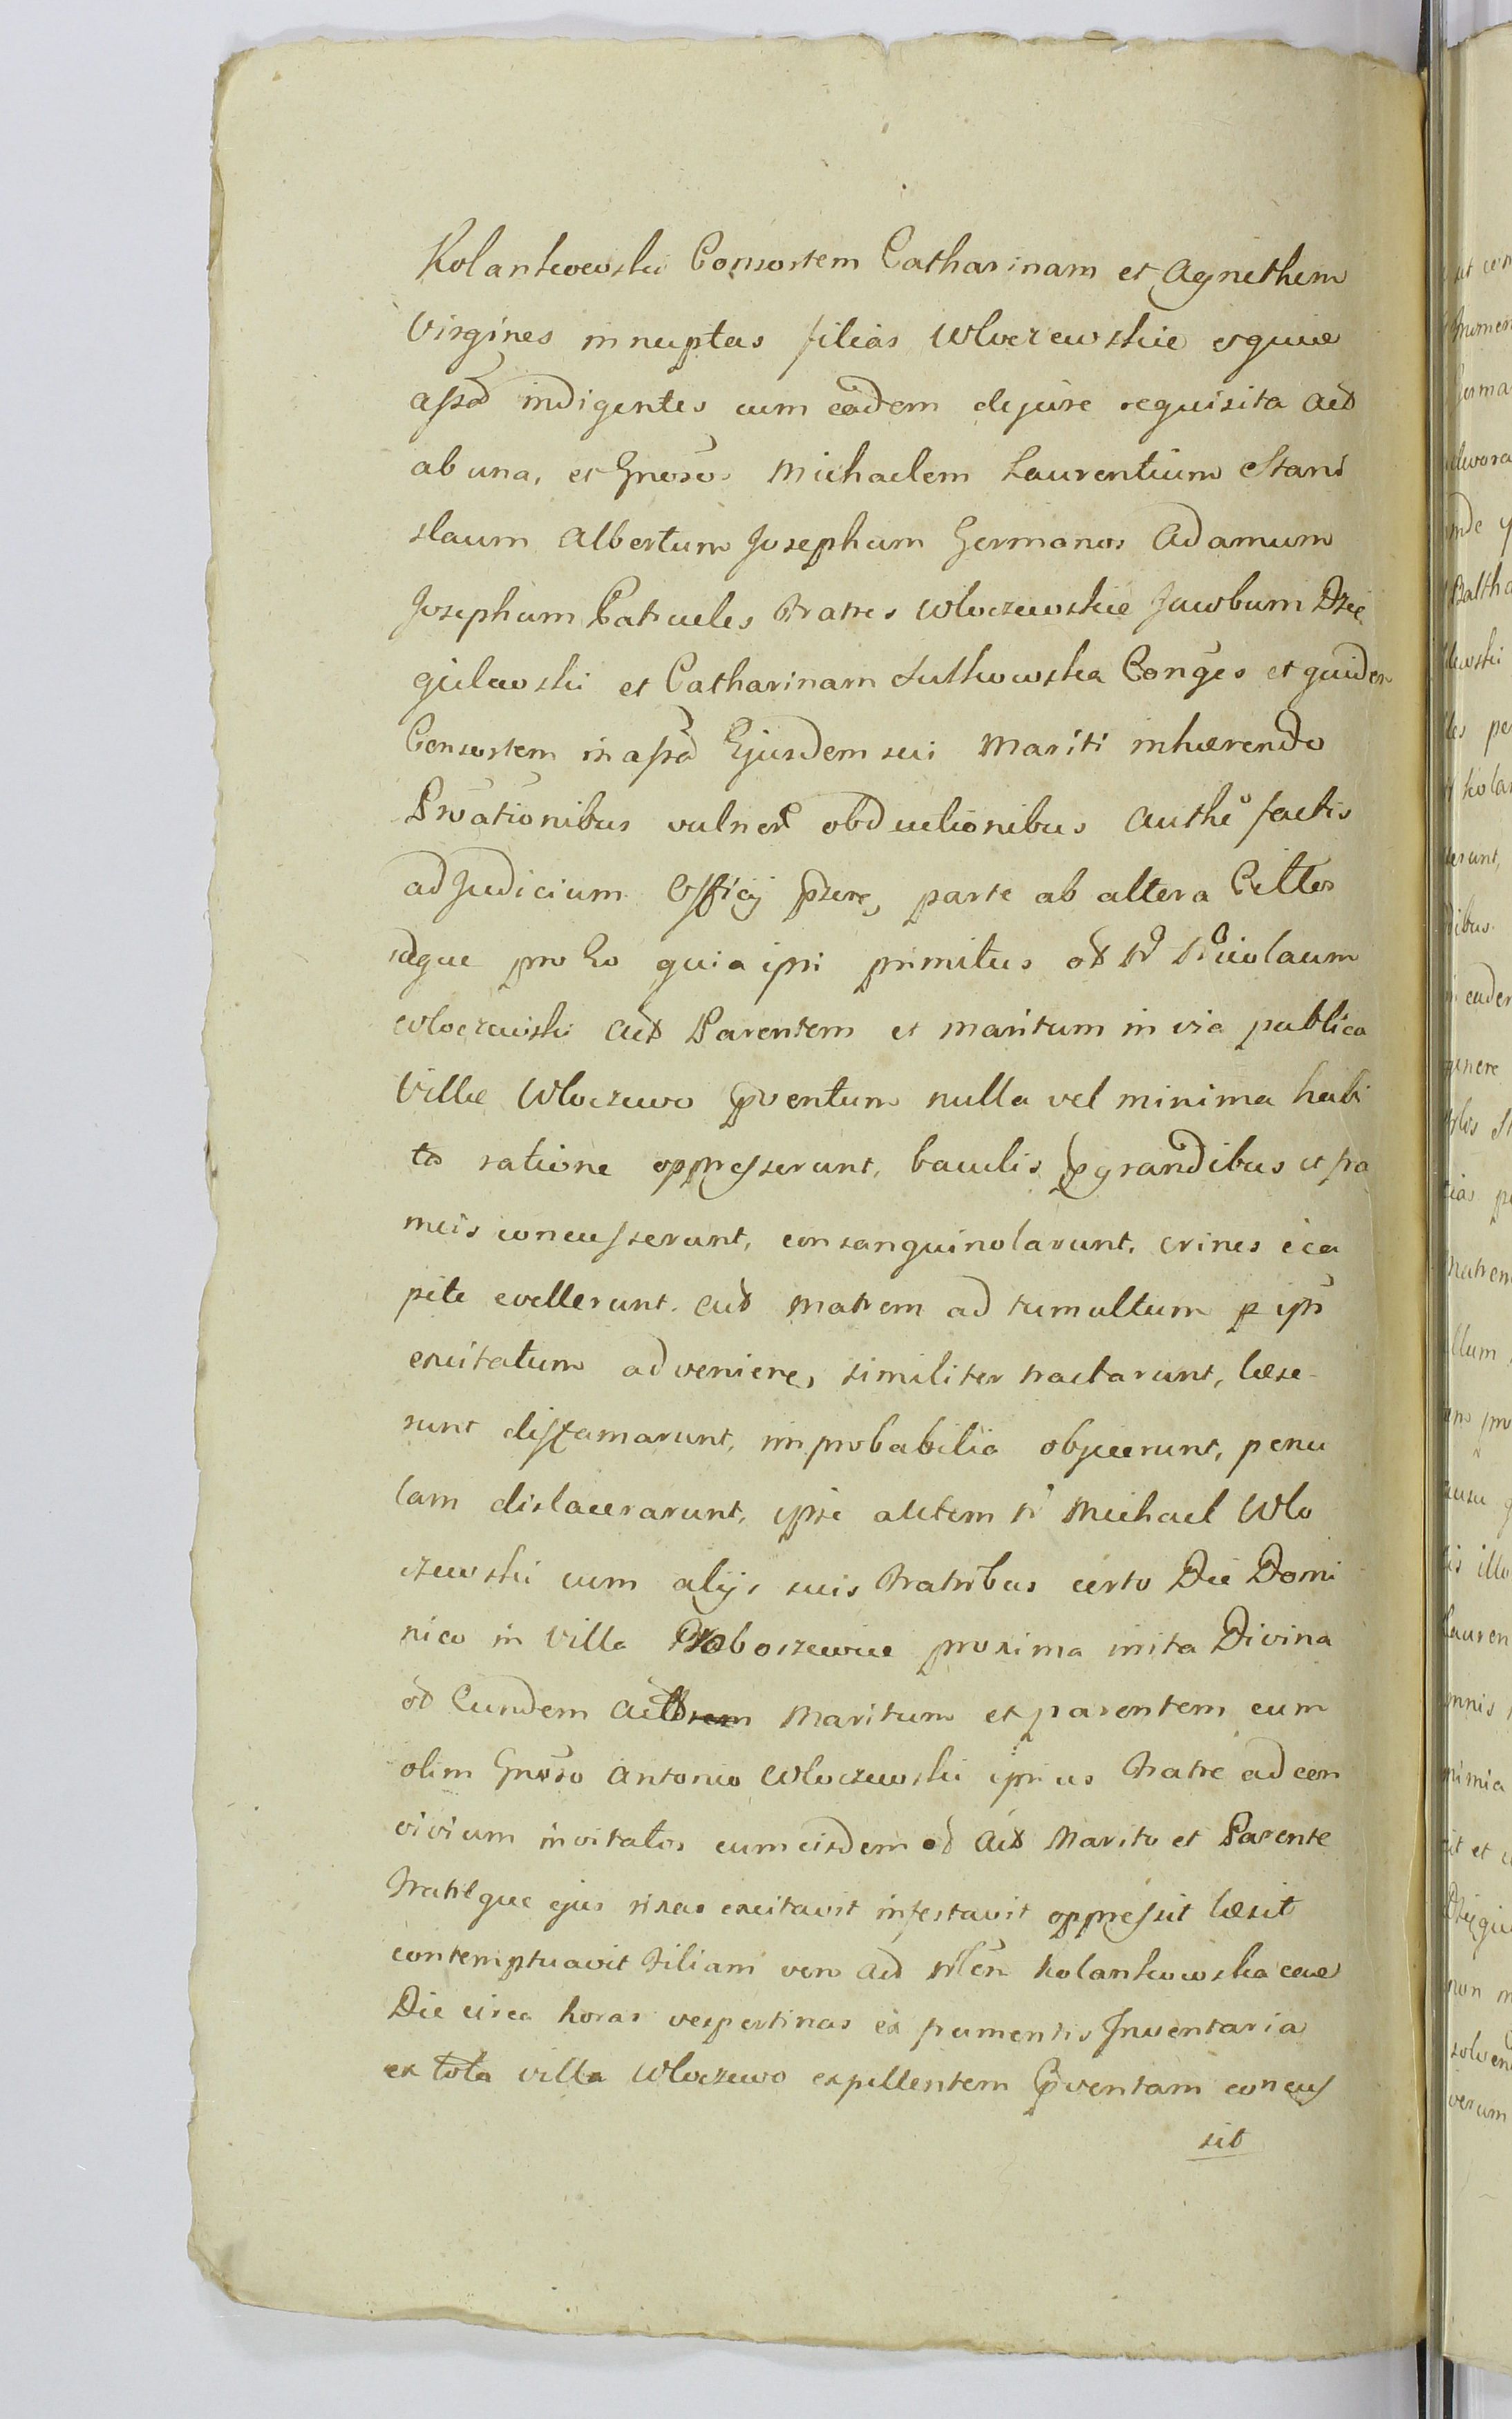 Kolankowski Consortem Catharinam et Agnethem
Virgines innuptas filias Wloczewskie eque
assa indigentes cum eadem dejure requisita act
ab una, et Gnosos Michaelem Laurentium Stani
slaum Albertum Josephum Germanos Adamum
Josephum Patrueles Fratres Wloczewskie Jacobum Dzie
gielewski et Catharinam Lutkowska Conges et quidem
Consortem in assa Ejusdem sui Mariti inhærendo
Prôationibus vulner obductionibus authê factis
ad Judicium Officij pzere, parte ab altera Cittos
idque pro Eo quia ipsi primitus od N Nicolaum
Wloczewski act Parentem et maritum in via publica
Villæ Wloczewo pventum nulla vel minima habi
ta ratione oppresserunt, baculis pgrandibus et fra
meis concusserunt, consanguinolarunt, crines e ca
pite evellerunt. act Matrem ad tumultum p ips
excitatum adveniene, similiter tractarunt, læse
runt diffamarunt, improbabilia objecerunt, penu
lam dislacerarunt, ipse autem N Michael Wlo
czewski cum alijs suis Fratribus certo Die Domi
nico in Villa Proboszewice proxima inita Divina
od Eundem act Maritum et parentem cum
olim Gnoso Antonio Wloczewski ipsius Fratre ad con
vivium invitatos cum eisdem od Act Marito et Parente
Fratreque ejus rixas excitavit infestavit oppressit læsit
contemptuavit Filiam vero act Kolankowska eave
Die circa horas vespertinas ex frumentis Inventaria
ex tota villa Wloczewo expellentem pventam concus
sit